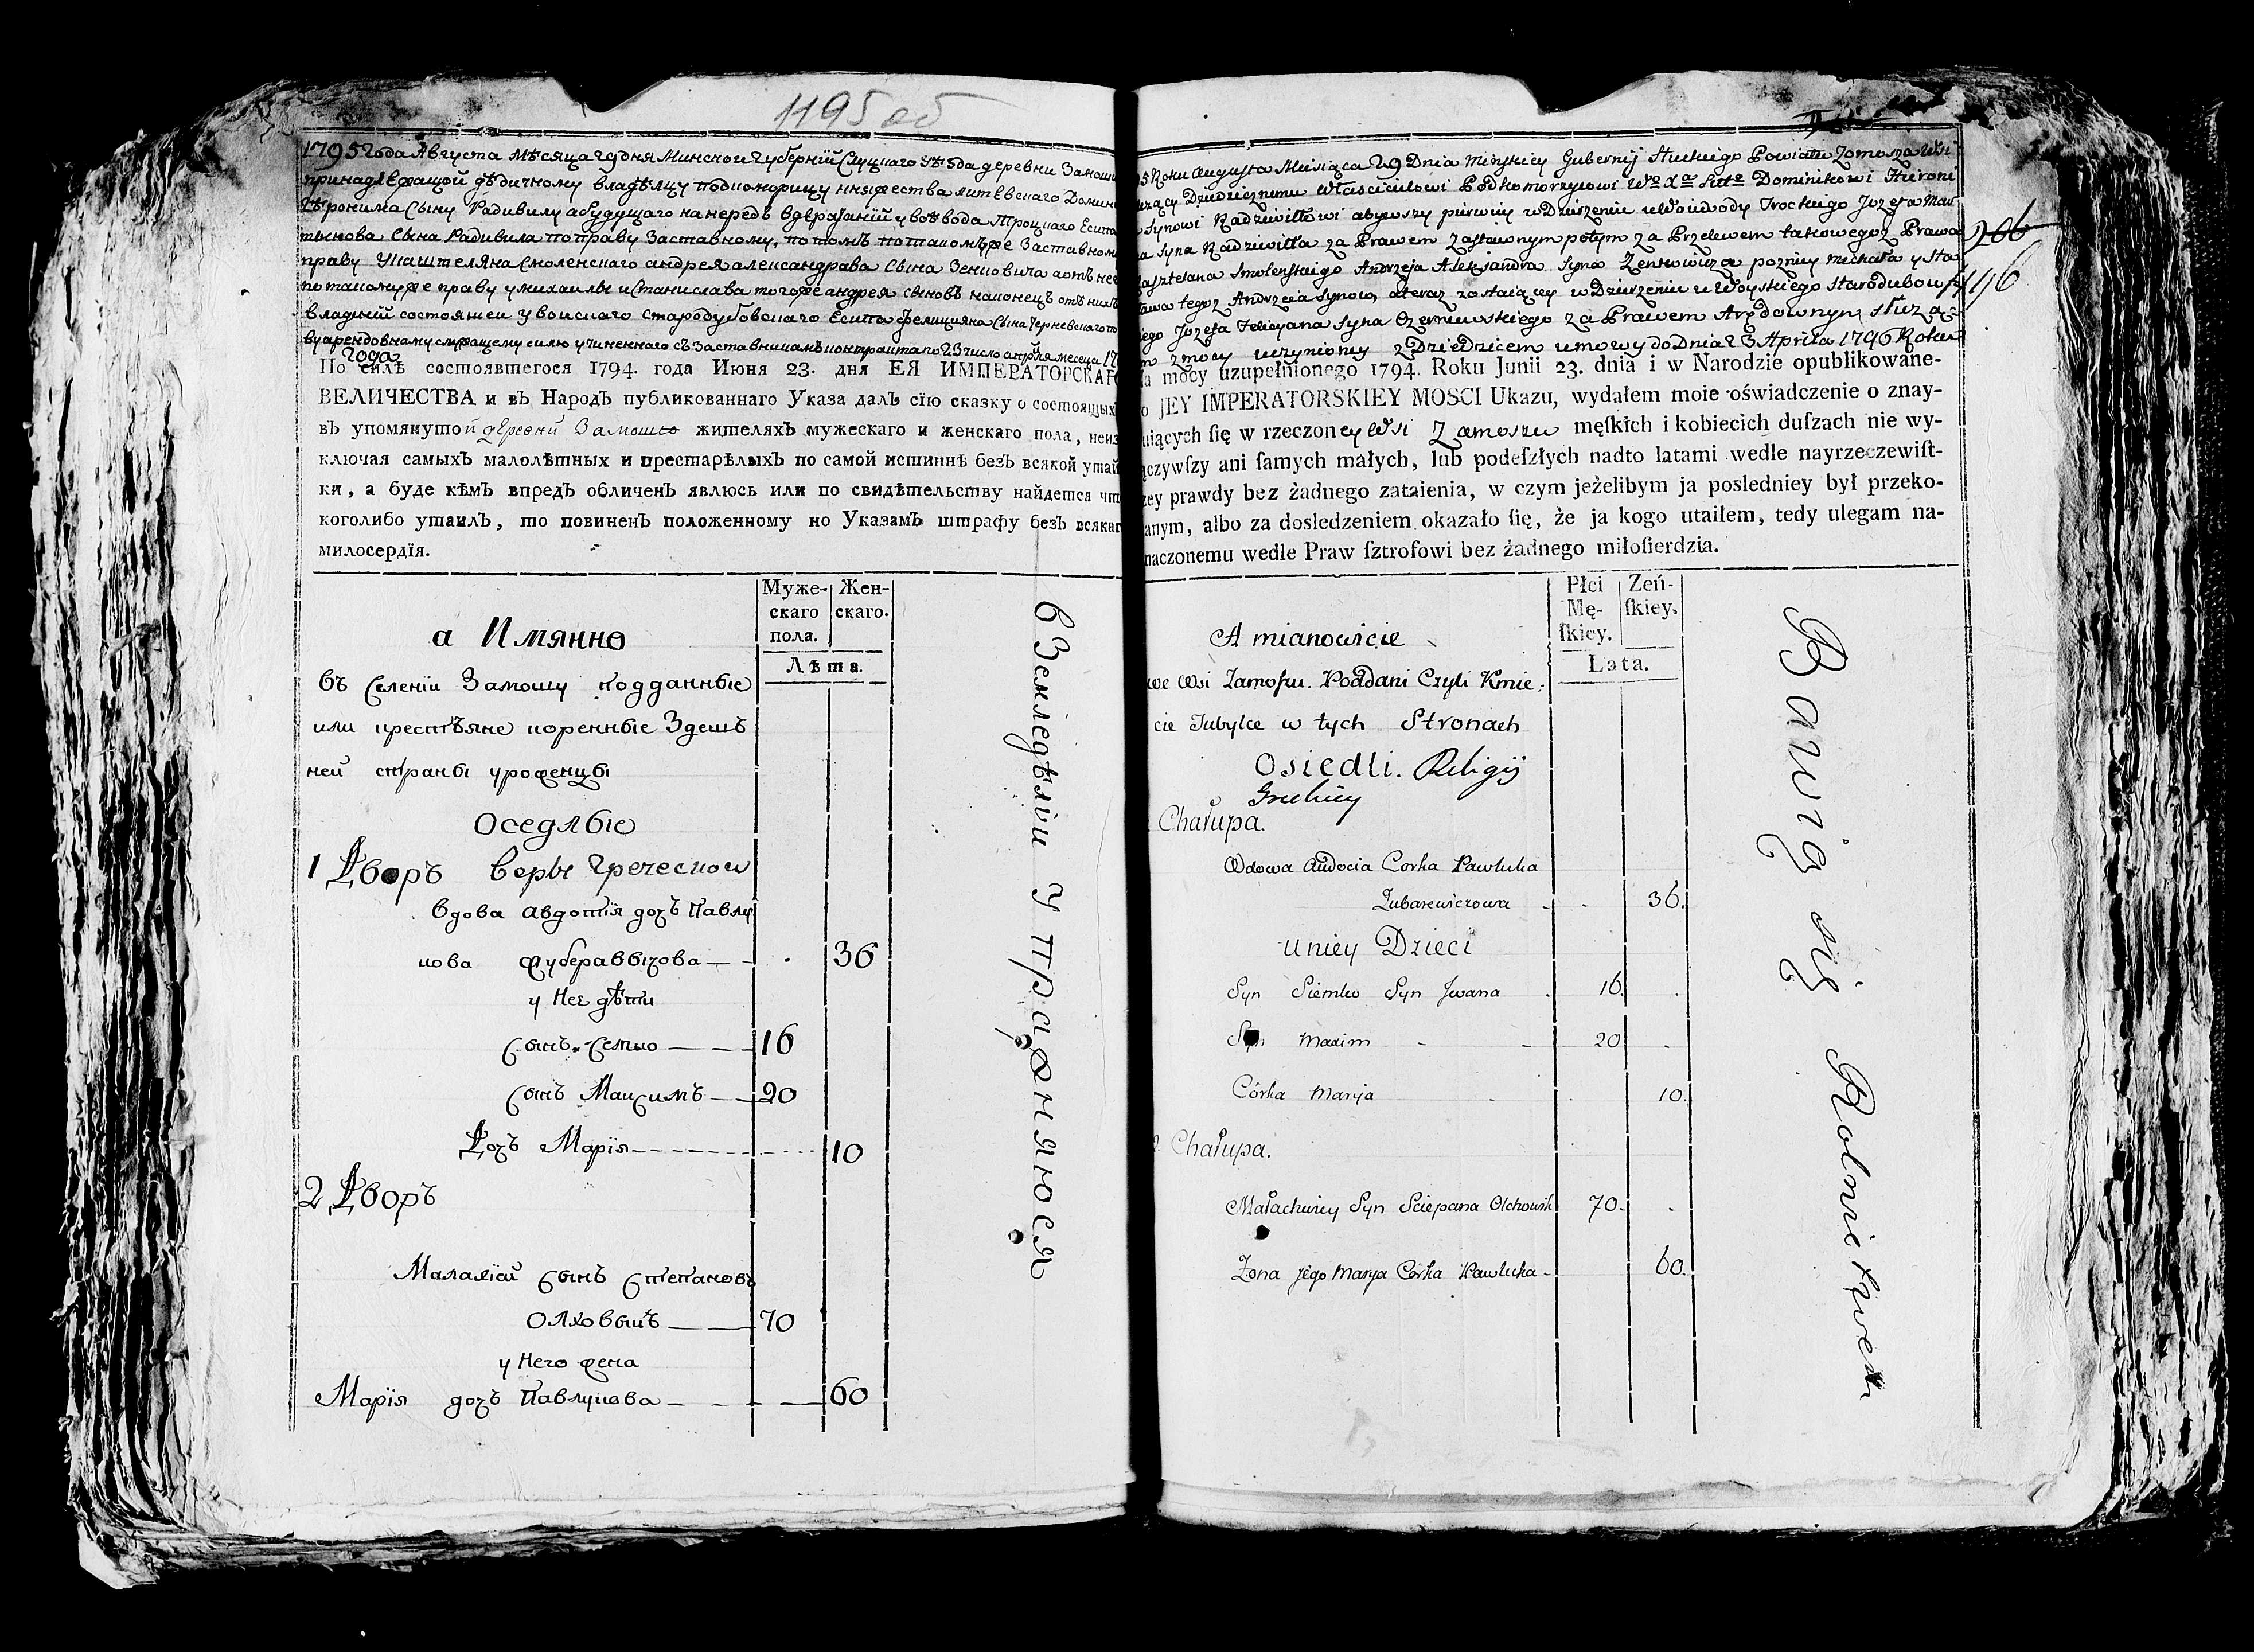 1195 об
1795 года Августа Мѣсяца 29 дня Минской Губернїи Слуцкаго уѣзда деревни Замоши
принадлежащой дѣдичному владѣлцу подкоморицу княжества литевскаго Домини
Геронима Сыну Радивилу а будущаго на передъ в держанїй у воеводы Троцкаго Есипа
тынова Сына Радивила по праву Заставному, потомъ по такомъже Заставному
праву У каштеляна Смоленскаго андрея александрава Сына Зенковича а отъ нее
по такомуже праву у михаилы и Станислава тогоже андрея сыновъ наконецъ отъ нихъ
владнїй состоящей у войскаго Стародубовскаго Есипа Фелицияна Сына Черневскаго по
ву арендовному служащему силю учиненнаго съ Заставникамъ контракта по 23 число апреля месеца 17
года
По силѣ состоявшегося 1794. года Июня 23. дня ЕЯ ИМПЕРАТОРСКАГО
ВЕЛИЧЕСТВА и въ Народъ публикованнаго Указа далъ сїю сказку о состоящыхъ
въ упомянутой деревни Замошю жителяхъ мужескаго и женскаго пола, неиз
ключая самыхъ малолѣтныхъ и престарѣлыхъ по самой истиннѣ безъ всякой утай
ки, а буде кѣмъ впредъ обличенъ явлюсь или по свидѣтельству найдется что
коголибо утаилъ, то повиненъ положенному по Указамъ штрафу безъ всякаго
милосердїя.
Муже-
скаго
пола.
Жен-
скаго.
Лѣта.
а Имянно
въ Селенїи Замошу подданные
или крестьяне коренные Здешъ
ней страны уроженцы
Оседлые
1 Дворъ веры Греческой
Вдова Авдотїя дочъ Павлу
кова Жуберавычова 36
у Нее дѣти
сынъ Семко 16
сынъ Максимъ 20
Дочъ Марїя 10
2 Дворъ
Малахїй сынъ Степановъ
Олховыкъ 70
у Него жена
Марїя дочъ Павлукова 60
в Земледѣлїи упражняюся
206
1196
5 Roku Augusta Miesiąca 29 Dnia Minskiey Gubernij Słuckiego Powiatu Zamosza Wsi
żący Dziedzicznemu Właścicielowi Podkomorzycowi Wo Xa Litto Dominikowi Hieroni
Synowi Radziwiłłowi a bywszy pierwiey w Dzierżeniu u Woiewody Trockiego Jozefa Mar
a Syna Radziwiłła za Prawem Zastawnym potym za Przelewem takowegoż Prawa
Kasztelana Smoleńskiego Andrzeja Aleksandra Syna Zenkowicza pozniey Michała y Sta
ława tegoż Andrzeia Synow, a teraz zostaiącey w Dzierżeniu u Woyskiego Starodubowsk
iego Jozefa Felicyana Syna Czerniewskiego za Prawem Arędownym służą-
m z mocy uczynioney z Dziedzicem umowy do Dnia 23 Aprila 1796 Roku
a mocy uzupełnionego 1794. Roku Junii 23. dnia i w Narodzie opublikowane-
o JEY IMPERATORSKIEY MOSCI Ukazu, wydałem moie oświadczenie o znay-
uiących ſię w rzeczoney Wsi Zamoszu męſkich i kobiecich duſzach nie wy-
ączywſzy ani ſamych małych, lub podeſzłych nadto latami wedle nayrzeczewiſt-
zey prawdy bez żadnego zataienia, w czym jeżelibym ja posledniey był przeko-
anym, albo za dosledzeniem okazało ſię, że ja kogo utaiłem, tedy ulegam na-
naczonemu wedle Praw ſztrofowi bez żadnego miłoſierdzia.
Płci
Mę-
ſkiey.
Zeń-
ſkiey.
Lata.
A mianowicie
we Wsi Zamoszu. Poddani Czyli Kmie:
cie Tubylce w tych Stronach
Osiedli. Religij
Greckiey
Chałupa.
Wdowa Audocia Corka Pawluka
Zubarewiczowa 36.
u niey Dzieci
Syn Siemko Syn Jwana 16.
Syn Maxim 20
Córka Marija 10.
2. Chałupa.
Małachwiey Syn Sciepana Olchowik 70.
Zona jego Marya Córka Pawluka 60.
Bawią się Rolnictwem